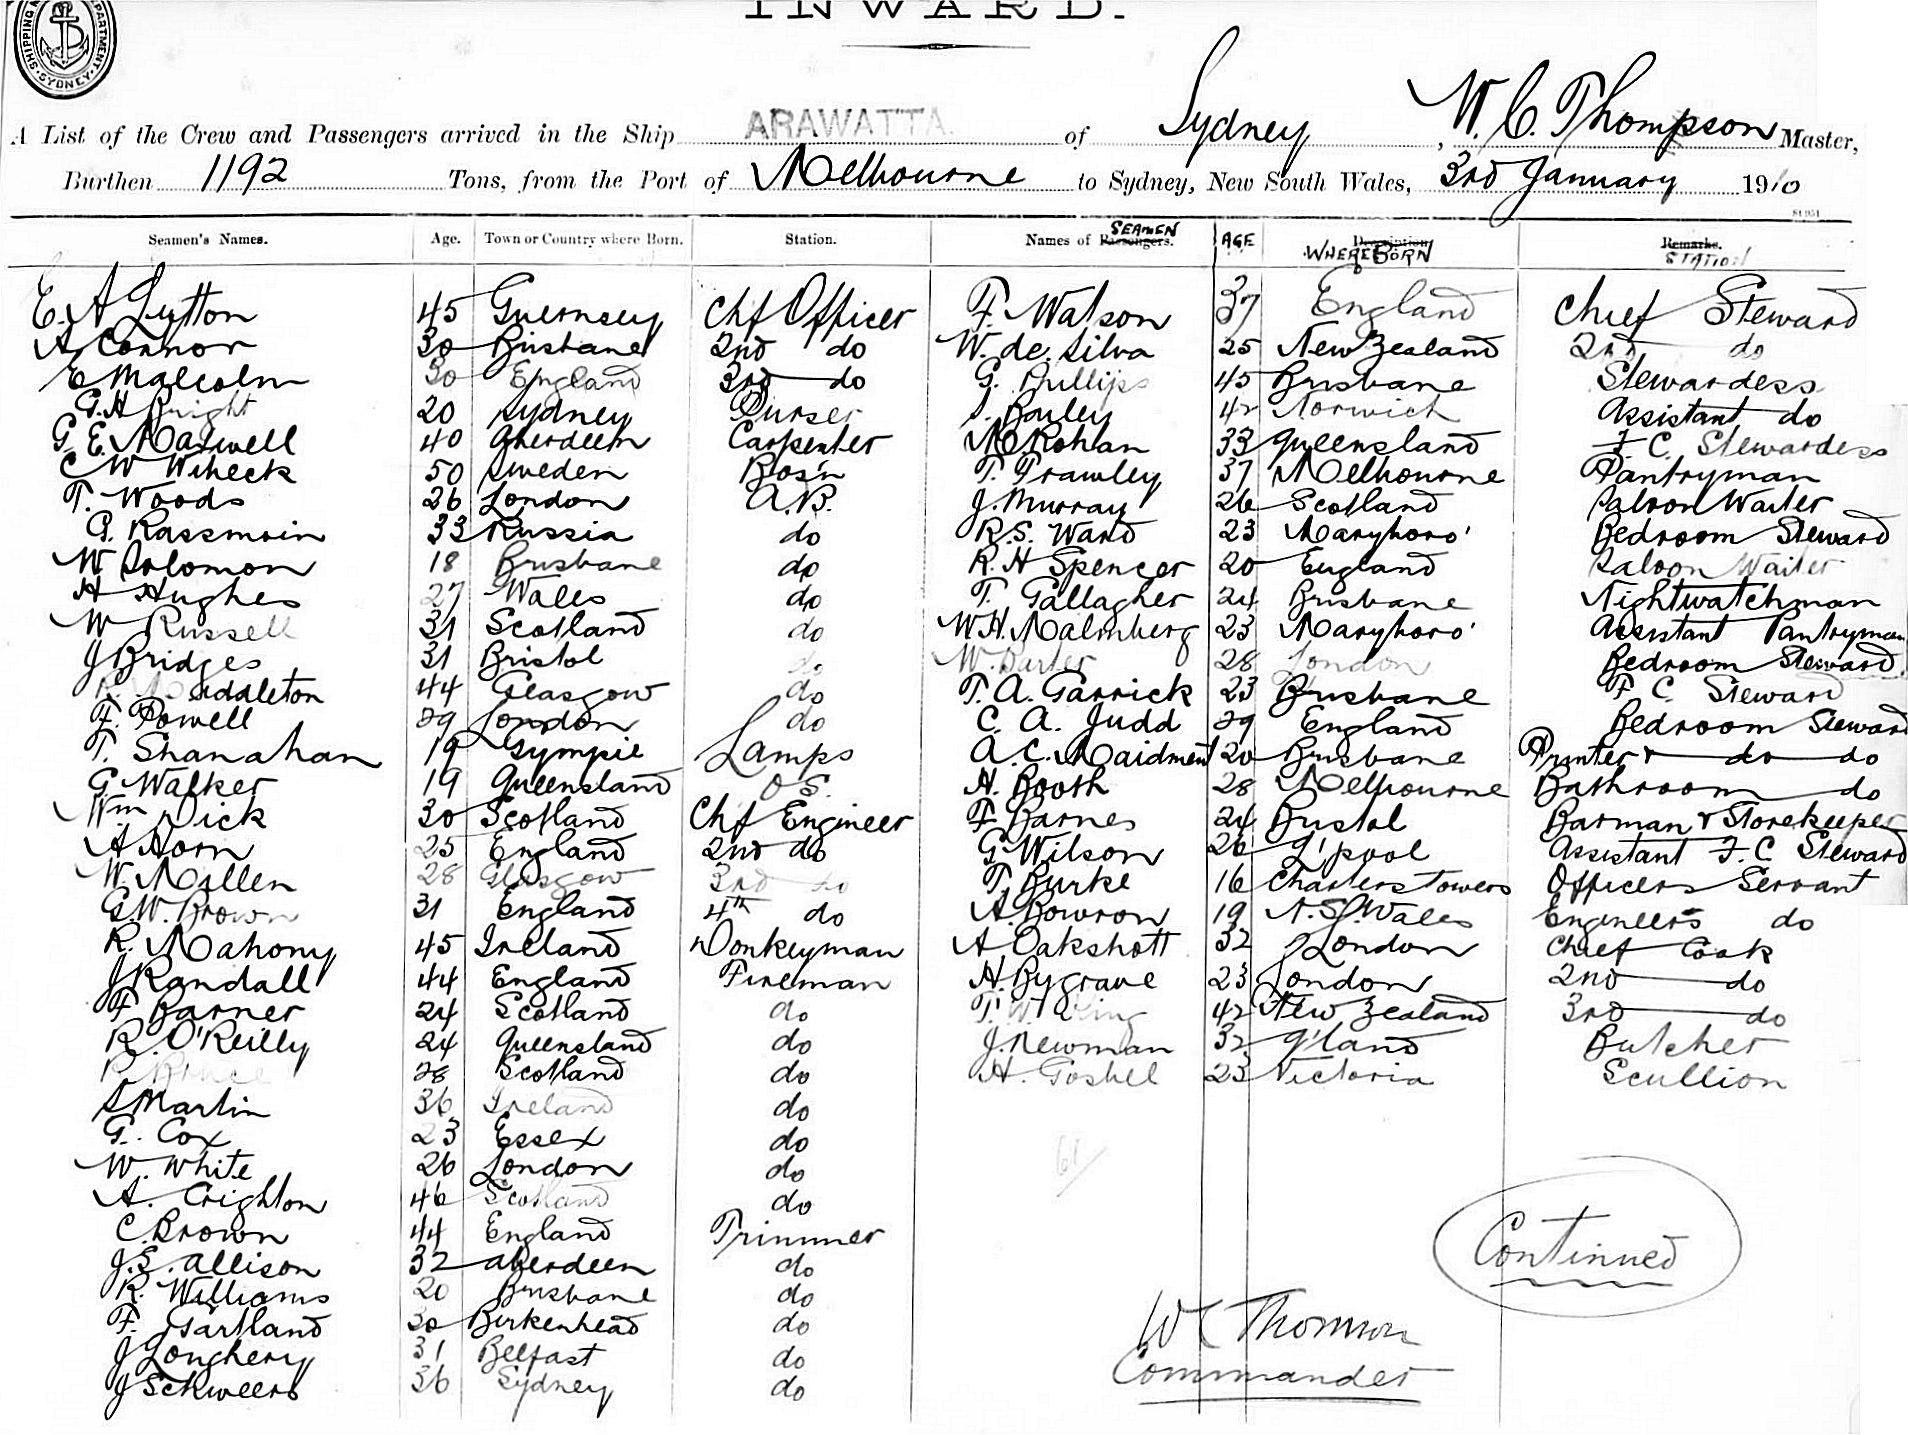 INWARD.
SHIPPING DEPARTMENT. SYDNEY
A List of the Crew and Passengers arrived in the Ship ARAWATTA. of Sydney, W. C. Thompson Master,
Burthen 1192 Tons, from the Port of Melbourne to Sydney, New South Wales, 3rd January 1910
Seamen's Names. Age. Town or Country where Born. Station. Names of Passengers. SEAMEN AGE Description WHERE BORN Remarks. STATION
E. A Lytton 45 Guernsey Chf Officer F. Watson 37 England Chief Steward
A Connor 30 Brisbane 2nd do W. de Silva 25 New Zealand 2nd do
E Malcolm 30 England 3rd do G. Phillips 45 Brisbane Stewardess
G. H Bright 20 Sydney Purser Bailey 42 Norwich Assistant do
G. E. Maxwell 40 Aberdeen Carpenter M Rohan 33 Queensland F. C. Stewardess
C W Wiheck 50 Sweden Bos'n T. Frawley 37 Melbourne Pantryman
T. Woods 26 London A.B. J. Murray 26 Scotland Saloon Waiter
G. Rassmsin 33 Russia do R. S. Ward 23 Maryboro' Bedroom Steward
W Solomon 18 Brisbane do R. H Spencer 20 England Saloon Waiter
H Hughes 27 Wales do T. Gallagher 24 Brisbane Nightwatchman
W Russell 31 Scotland do W. H. Malmberg 23 Maryboro' Assistant Pantryman
J Bridges 31 Bristol do W. Barter 28 London Bedroom Steward
R. Middleton 44 Glasgow do T. A. Garrick 23 Brisbane F C Steward
F. Powell 29 London do C. A. Judd 29 England Bedroom Steward
T. Shanahan 19 Gympie Lamps A. C. Maidment 20 Brisbane Printer & do do
G Walker 19 Queensland O S. H. Booth 28 Melbourne Bathroom do
Wm Dick 30 Scotland Chf Engineer F Barnes 24 Bristol Barman & Storekeeper
A Horn 25 England 2nd do G Wilson 26 L'pool Assistant F. C Steward
W. Millen 28 Glasgow 3rd do T. Burke 16 Charters Towers Officers Servant
G. W. Brown 31 England 4th do A. Bowron 19 N. S. Wales Engineers do
R. Mahony 45 Ireland Donkeyman A Oakshott 32 London Chief Cook
J Randall 44 England Fireman H. Bygrave 23 London 2nd do
F Barner 24 Scotland do T. W. King 42 New Zealand 3rd do
R. O'Reilly 24 Queensland do J. Newman 32 Q'land Butcher
R Bruce 28 Scotland do H. Goshel 23 Victoria Scullion
S Martin 36 Ireland do
G. Cox 23 Essex do
W. White 26 London do
A. Crighton 46 Scotland do
C. Brown 44 England Trimmer
J. S. Allison 32 Aberdeen do
R. Williams 20 Brisbane do
F. Gartland 30 Birkenhead do
J Loughery 31 Belfast do
J Schweers 36 Sydney do
61
Continued
W C Thomson
Commander